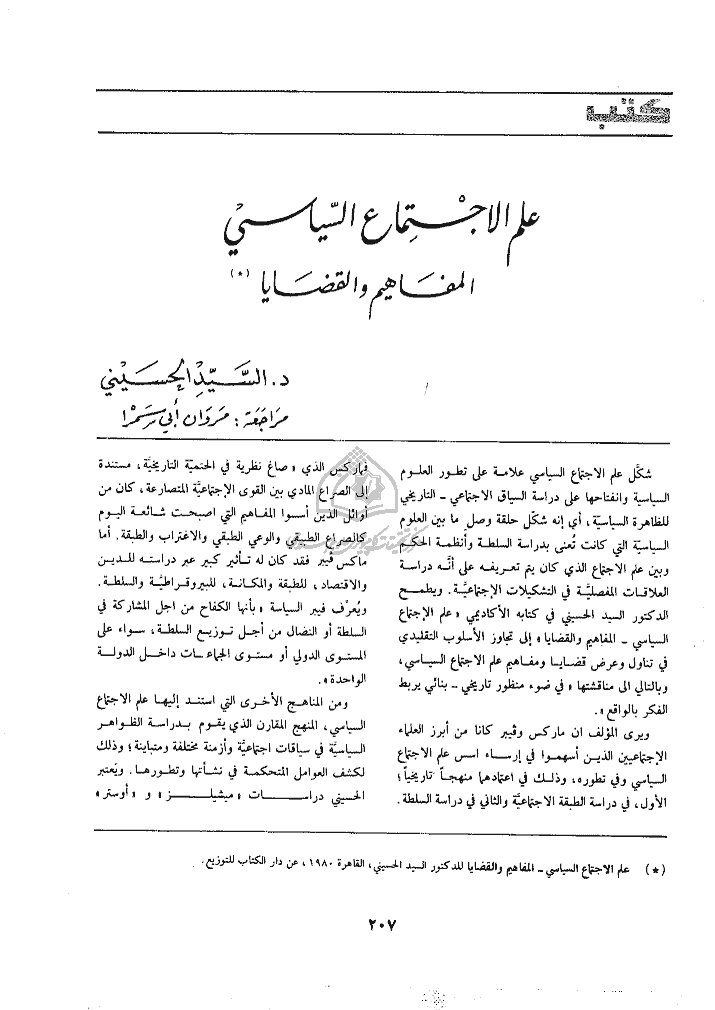 كتب
علم الاجتماع السّياسي
المفاهيم والقضايا (*)
د. السَّيّد الحسيني
مراجعة: مروان أبي سمرا
شكَّل علم الاجتماع السياسي علامة على تطور العلوم
السياسية وانفتاحها على دراسة السياق الاجتماعي - التاريخي
للظاهرة السياسيّة، أي إنه شكّل حلقة وصل ما بين العلوم
السياسية التي كانت تُعنى بدراسة السلطة وأنظمة الحكم
وبين علم الاجتماع الذي كان يتم تعريفه على أنَّه دراسة
العلاقات المفصليَّة في التشكيلات الإجتماعيَّة. ويطمح
الدكتور السيد الحسيني في كتابه الأكاديمي «علم الإجتماع
السياسي - المفاهيم والقضايا» إلى تجاوز الأسلوب التقليدي
في تناول وعرض قضايا ومفاهيم علم الاجتماع السياسي،
وبالتالي الى مناقشتها «في ضوء منظور تاريخي - بنائي يربط
الفكر بالواقع».
ويرى المؤلف ان ماركس وڤيبر كانا من أبرز العلماء
الإجتماعيين الذين أسهموا في إرساء اسس علم الإجتماع
السياسي وفي تطوره، وذلك في اعتمادهما منهجاً تاريخياً؛
الأول، في دراسة الطبقة الاجتماعيَّة والثاني في دراسة السلطة.
فماركس الذي «صاغ نظرية في الحتميَّة التاريخيَّة، مستندة
إلى الصراع المادي بين القوى الإجتماعيَّة المتصارعة، كان من
أوائل الذين أسسوا المفاهيم التي اصبحت شائعة اليوم
كالصراع الطبقي والوعي الطبقي والاغتراب والطبقة. أما
ماكس ڤيبر فقد كان له تأثير كبير عبر دراسته للدين
والاقتصاد، للطبقة والمكانة، للبيروقراطيَّة والسلطة.
ويُعرّف فيبر السياسة «بأنها الكفاح من اجل المشاركة في
السلطة أو النضال من أجل توزيع السلطة، سواء على
المستوى الدولي أو مستوى الجماعات داخل الدولة
الواحدة».
ومن المناهج الأخرى التي استند إليها علم الاجتماع
السياسي، المنهج المقارن الذي يقوم بدراسة الظواهر
السياسيَّة في سياقات اجتماعيَّة وأزمنة مختلفة ومتباينة؛ وذلك
لكشف العوامل المتحكمة في نشأتها وتطورها. ويَعتبر
الحسيني دراسات «ميشيلز» و «أوستر»
(*) علم الاجتماع السياسي - المفاهيم والقضايا للدكتور السيد الحسيني، القاهرة ١٩٨٠، عن دار الكتاب للتوزيع.
٢٠٧